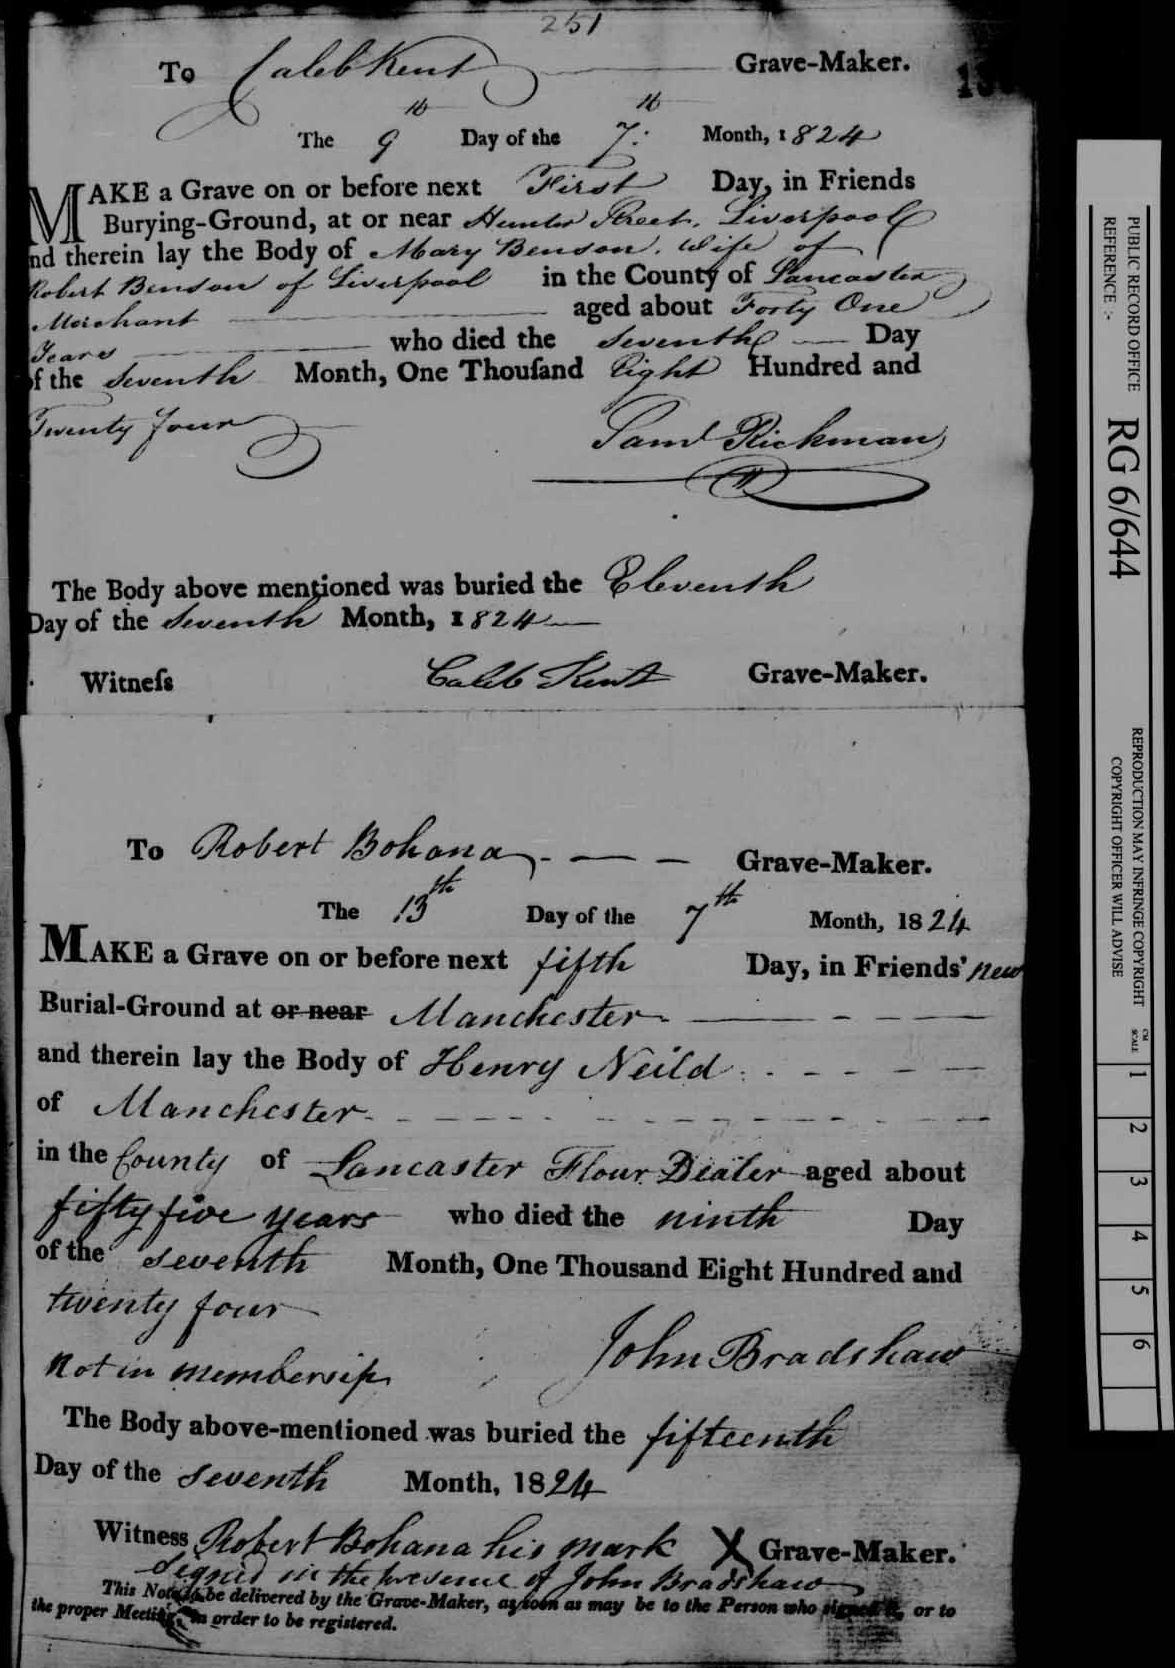 251
To Caleb Kent Grave-Maker.
The 9th Day of the 7th Month, 1824
MAKE a Grave on or before next First Day, in Friends
Burying-Ground, at or near Hunter Street, Liverpool
nd therein lay the Body of Mary Benson, Wife of
Robert Benson of Liverpool in the County of Lancaster
Merchant aged about Forty One
Years who died the Seventh Day
of the Seventh Month, One Thouſand Eight Hundred and
Twenty four
Saml Rickman
The Body above mentioned was buried the Eleventh
Day of the Seventh Month, 1824
Witneſs Caleb Kent Grave-Maker.
To Robert Bohana Grave-Maker.
The 13th Day of the 7th Month, 1824
MAKE a Grave on or before next fifth Day, in Friends' new
Burial-Ground at or near Manchester
and therein lay the Body of Henry Neild
of Manchester
in the County of Lancaster Flour Dealer aged about
fifty five years who died the ninth Day
of the seventh Month, One Thousand Eight Hundred and
twenty four
John Bradshaw
Not in membersip
The Body above-mentioned was buried the fifteenth
Day of the seventh Month, 1824
Witness Robert Bohana his mark X Grave-Maker.
Signed in the presence of John Bradshaw
This Note to be delivered by the Grave-Maker, as soon as may be to the Person who signed it, or to
the proper Meeting, in order to be registered.
PUBLIC RECORD OFFICE
REFERENCE :-
RG 6/644
REPRODUCTION MAY INFRINGE COPYRIGHT
COPYRIGHT OFFICER WILL ADVISE
CM
SCALE
1
2
3
4
5
6